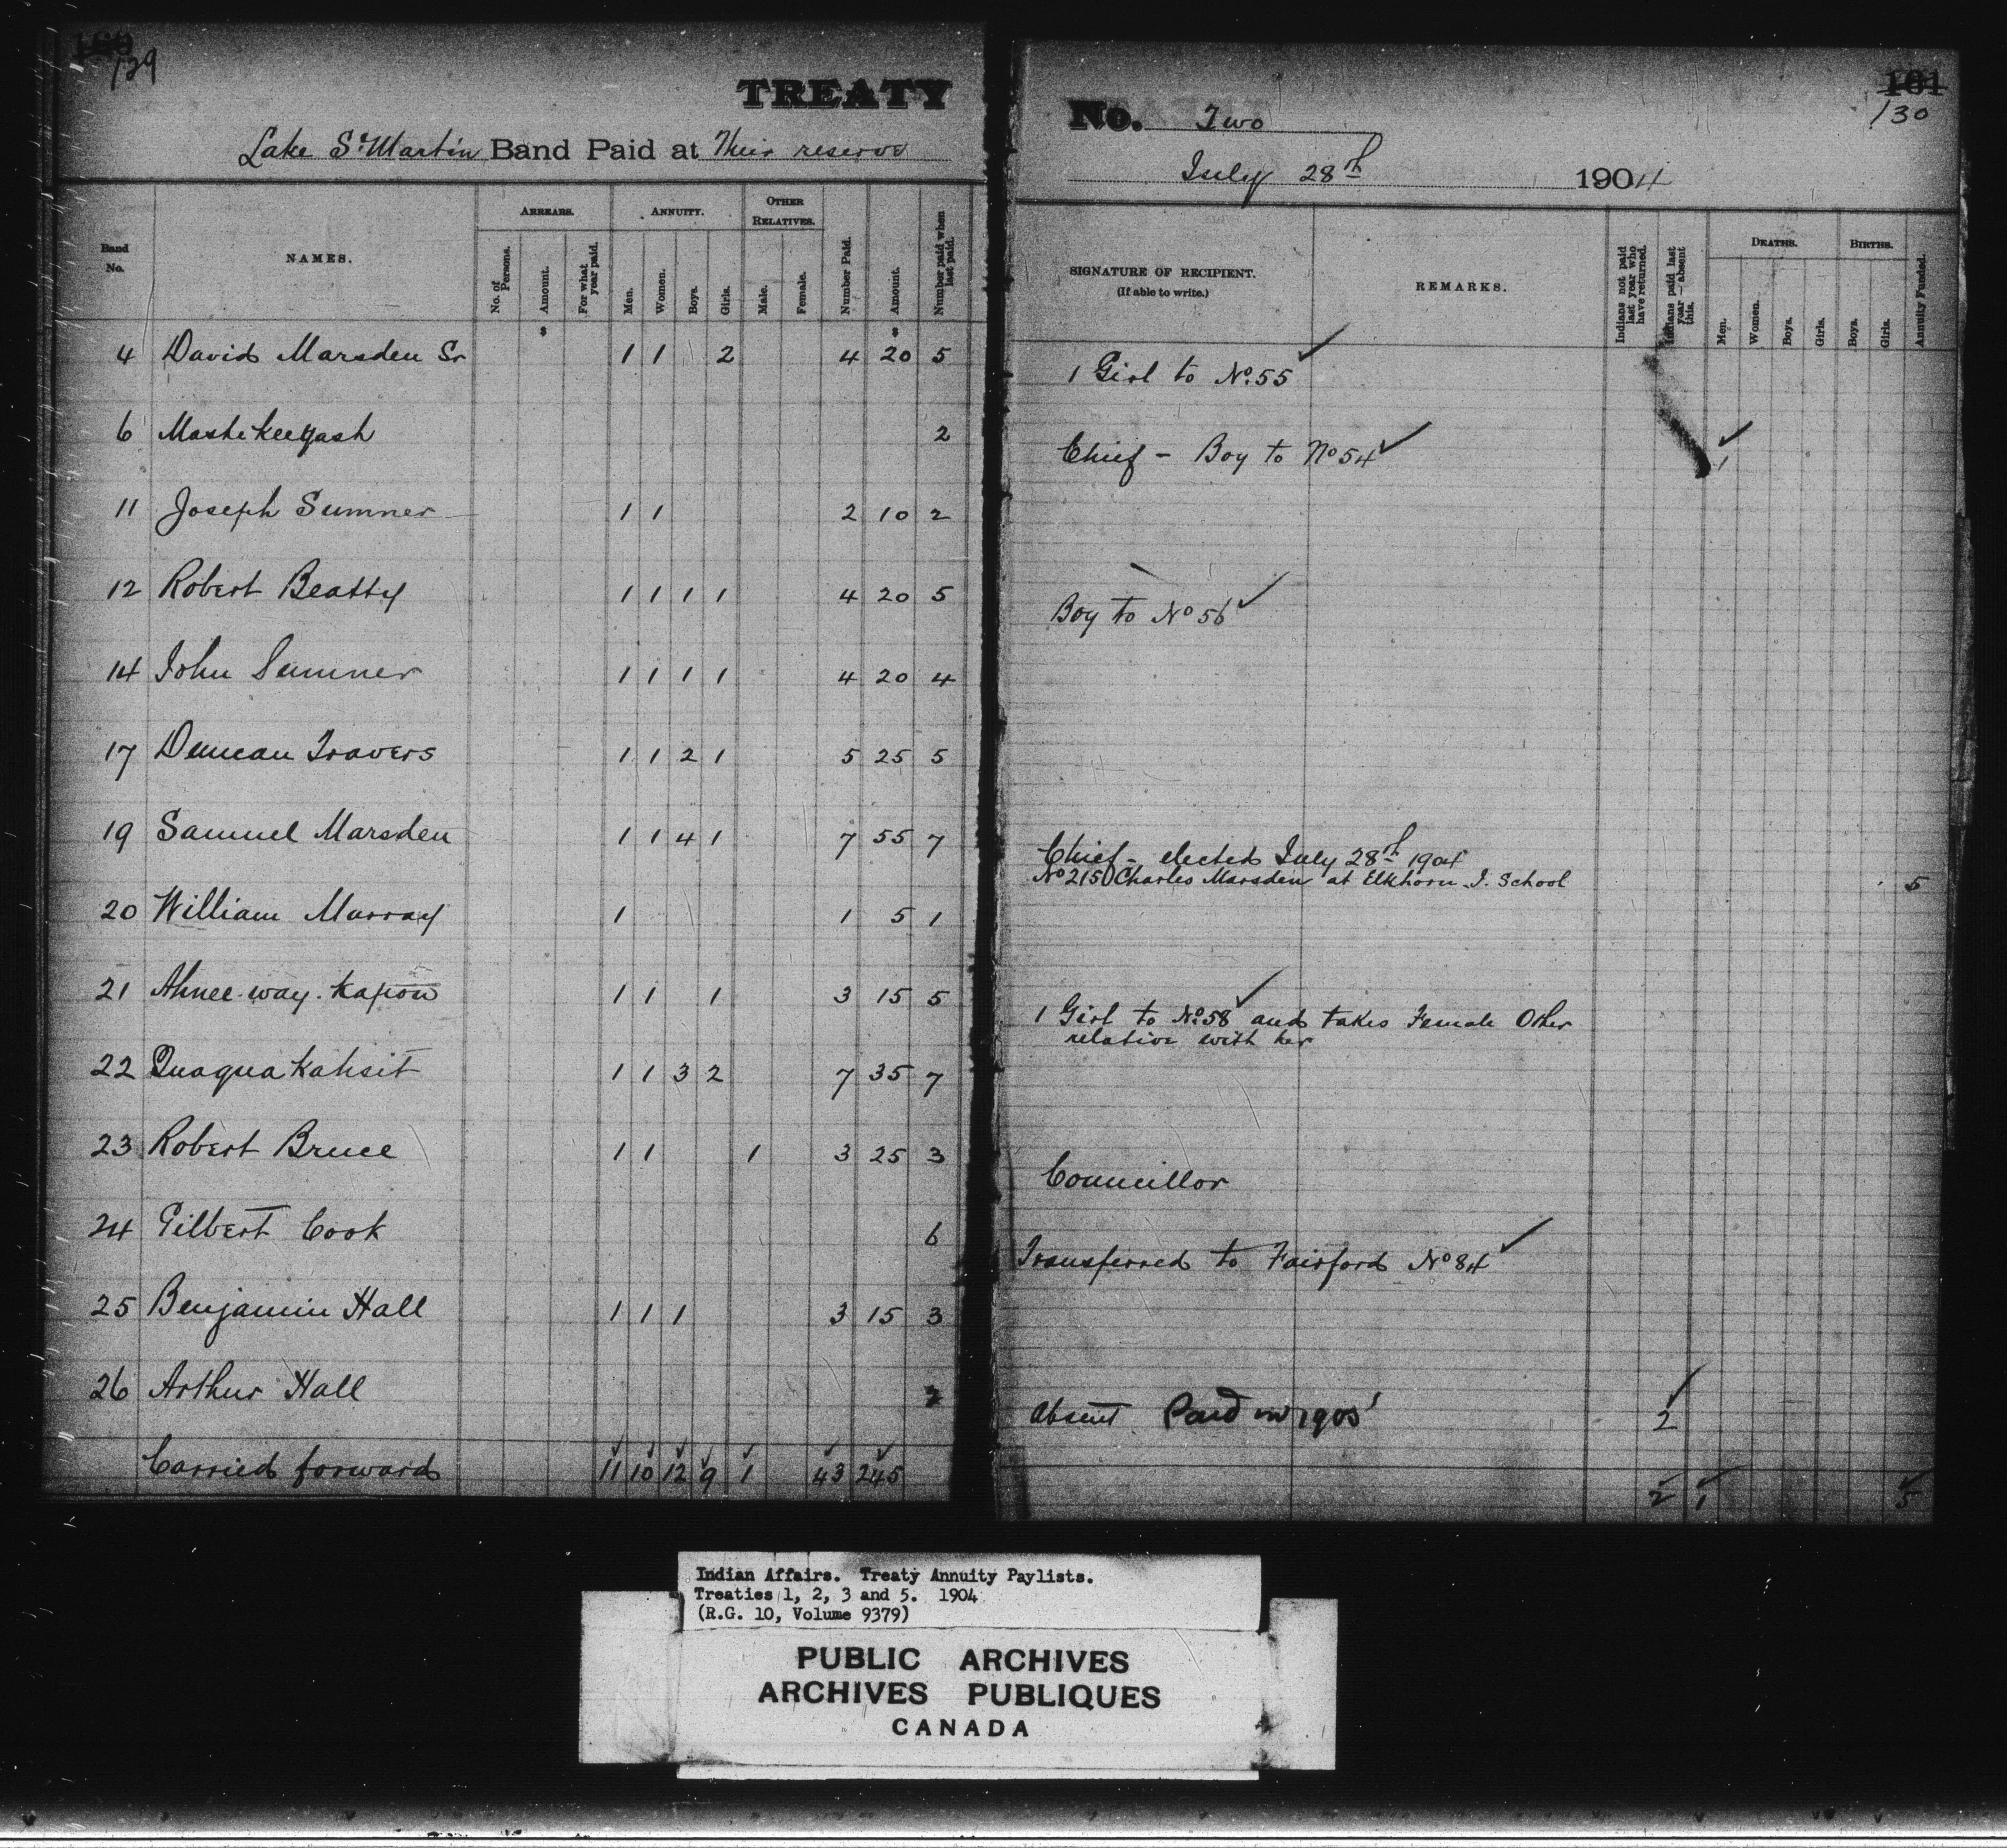 129
TREATY
Lake St Martin Band Paid at Their reserve
Band No. NAMES. ARREARS. No. of Persons. Amount. For what year paid. ANNUITY. Men. Women. Boys. Girls. OTHER RELATIVES. Male. Female. Number Paid. Amount. Number paid when last paid.
4 David Marsden Sr 1 1 2 4 20 5
6 2
11 Joseph Sumner 1 1 2 10 2
12 Robert Beatty 1 1 1 1 4 20 5
14 John Sumner 1 1 1 1 4 20 4
17 Duncan Travers 1 1 2 1 5 25 5
19 Samuel Marsden 1 1 4 1 7 55 7
20 William Murray 1 1 5 1
21 Ahnee-way-kapow 1 1 1 3 15 5
22 Quaquakahsit 1 1 3 2 7 35 7
23 Robert Bruce 1 1 1 3 25 3
24 Gilbert Cook 6
25 Benjamin Hall 1 1 1 3 15 3
26 Arthur Hall 2
Carried forward 11 10 12 9 1 43 245
101
130
No. Two
July 28th 1904
SIGNATURE OF RECIPIENT. (If able to write.) REMARKS. Indians not paid last year who have returned. Indians paid last year—absent this. DEATHS. Men. Women. Boys. Girls. BIRTHS. Boys. Girls. Annuity Funded.
1 Girl to No. 55 ✓
Chief - Boy to No 54 ✓ ✓ 1
Boy to No 56 ✓
Chief - elected July 28th 1904
No 215 Charles Marsden at Elkhorn I. School 5
1 Girl to No. 58 ✓ and takes Female Other
relative with her
Councillor
Transferred to Fairford No 84 ✓
Absent Paid in 1905 ✓ 2
2 1 5
Indian Affairs. Treaty Annuity Paylists.
Treaties 1, 2, 3 and 5. 1904
(R.G. 10, Volume 9379)
PUBLIC ARCHIVES
ARCHIVES PUBLIQUES
CANADA